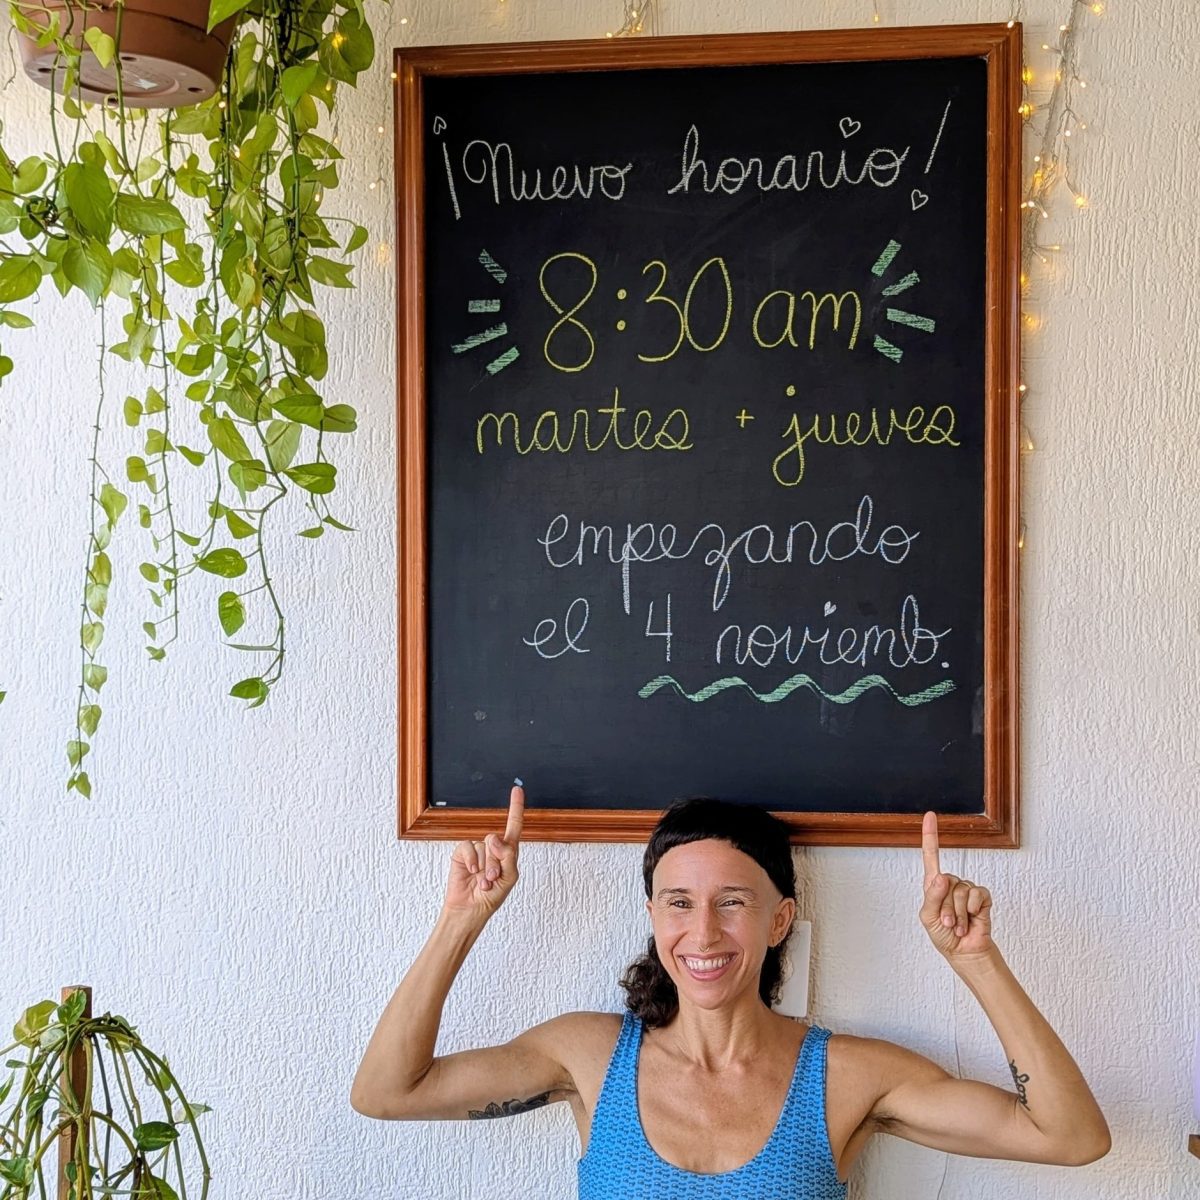 ¡Nuevo horario!
8:30 am
martes + jueves
empezando
el 4 noviemb.